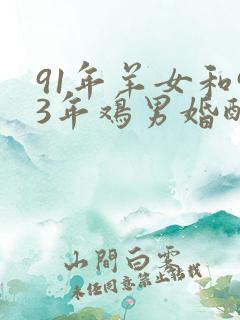 91年羊女和
3年鸡男婚
山間白雲
未经同意禁止转载